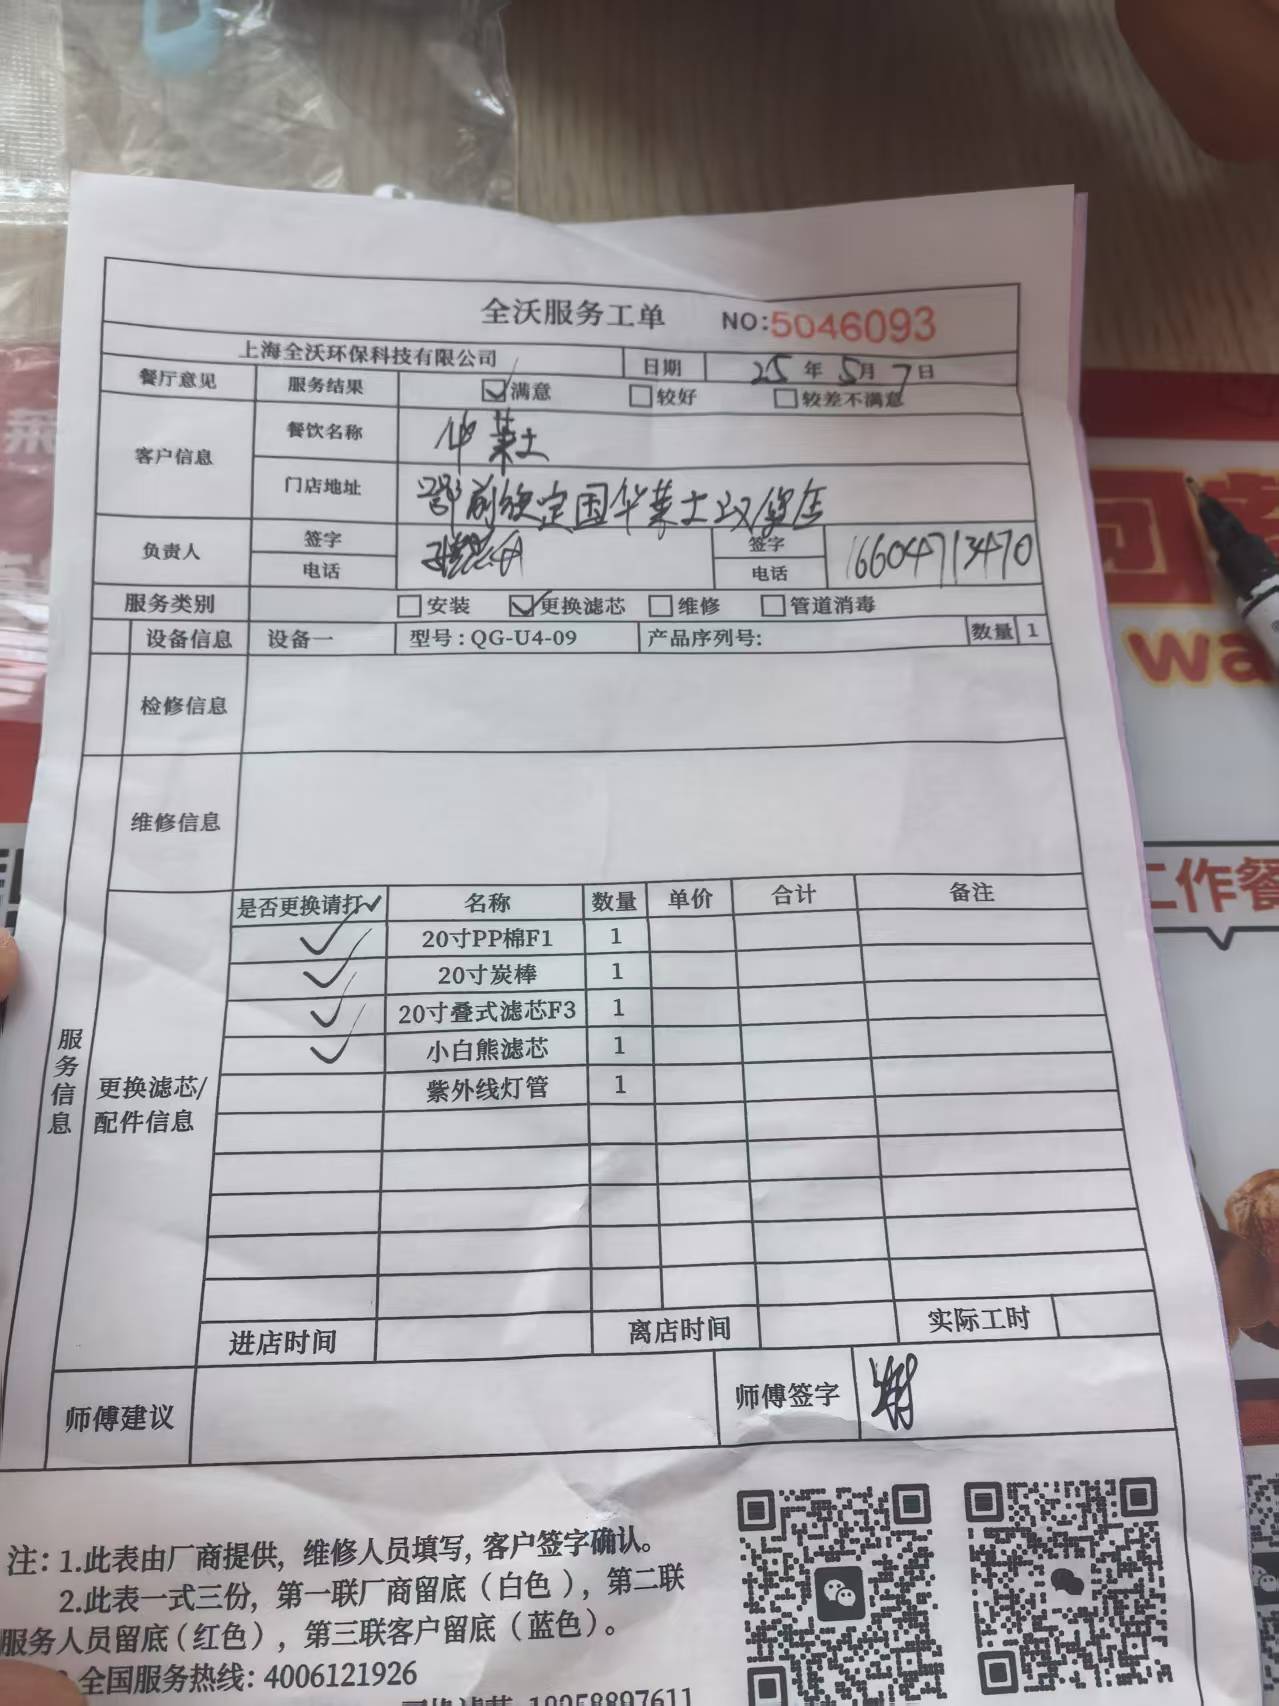 全沃服务工单 NO:5046093
上海全沃环保科技有限公司 日期 25年5月7日
餐厅意见 服务结果 ☑满意 □较好 □较差不满意
客户信息 餐饮名称 华莱士
门店地址 定国华莱士汉堡店
负责人 签字 签字
电话 电话 16604713470
服务类别 □安装 ☑更换滤芯 □维修 □管道消毒
设备信息 设备一 型号:QG-U4-09 产品序列号: 数量 1
检修信息
维修信息
服务信息
更换滤芯/
配件信息
是否更换请打✓ 名称 数量 单价 合计 备注
✓ 20寸PP棉F1 1
✓ 20寸炭棒 1
✓ 20寸叠式滤芯F3 1
✓ 小白熊滤芯 1
紫外线灯管 1
进店时间 离店时间 实际工时
师傅建议 师傅签字
注:1.此表由厂商提供,维修人员填写,客户签字确认。
2.此表一式三份,第一联厂商留底(白色),第二联
服务人员留底(红色),第三联客户留底(蓝色)。
全国服务热线:4006121926
18258897611
wa
工作餐